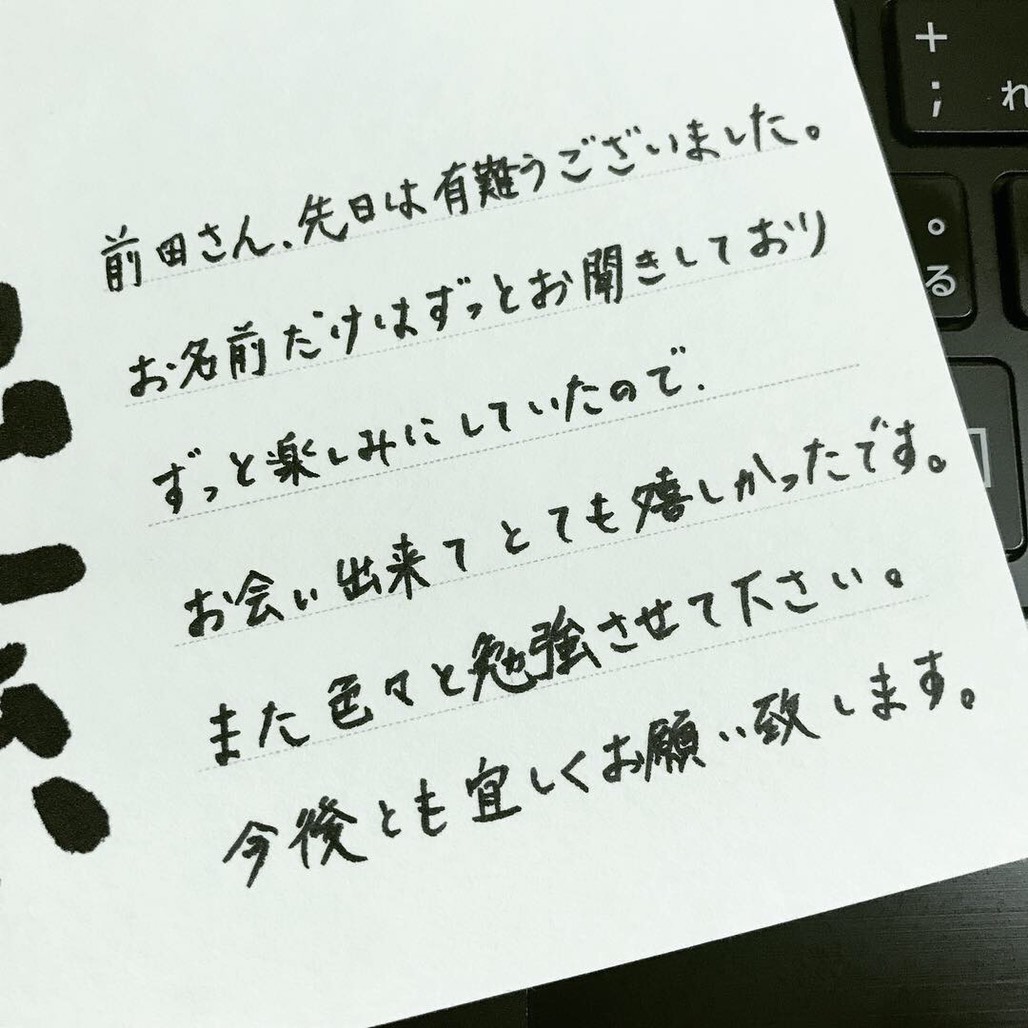 前田さん、先日は有難うございました。
お名前だけはずっとお聞きしており
ずっと楽しみにしていたので、
お会い出来てとても嬉しかったです。
また色々と勉強させて下さい。
今後とも宜しくお願い致します。
+
;
れ
。
る